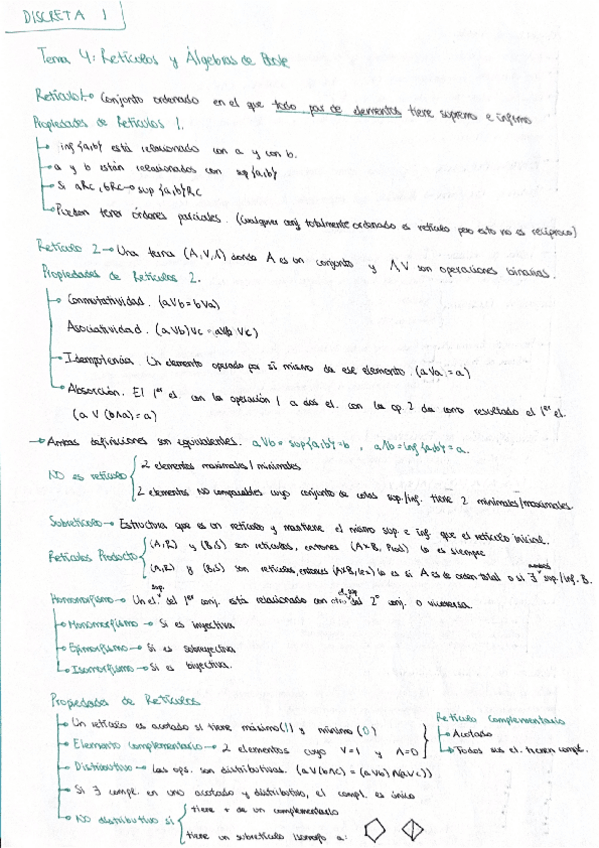 DISCRETA 1
Tema 4: Retículos y Álgebras de Boole
Retículo 1 → Conjunto ordenado en el que todo par de elementos tiene supremo e ínfimo
Propiedades de Retículos 1.
→ inf {a,b} está relacionado con a y con b.
→ a y b están relacionados con sup {a,b}
→ Si aRc, bRc → sup {a,b}Rc
→ Pueden tener órdenes parciales. (Cualquier conj totalmente ordenado es retículo pero esto no es recíproco)
Retículo 2 → Una terna (A,V,Λ) donde A es un conjunto y Λ V son operaciones binarias.
Propiedades de Retículos 2.
→ Conmutatividad. (aVb = bVa)
Asociatividad. (aVb)Vc = aV(b Vc)
→ Idempotencia. Un elemento operado por sí mismo da ese elemento. (aVa = a)
→ Absorción. El 1er el. con la operación 1 a dos el. con la op. 2 da como resultado el 1er el.
(a V (bΛa) = a)
→ Ambas definiciones son equivalentes. aVb = sup{a,b} = b , aΛb = inf {a,b} = a.
NO es retículo { 2 elementos maximales / minimales
2 elementos NO comparables cuyo conjunto de cotas sup./inf. tiene 2 minimales/maximales.
Subretículo → Estructura que es un retículo y mantiene el mismo sup. e inf. que el retículo inicial.
Retículos Producto { (A,R) y (B,S) son retículos, entonces (A×B, Prod) lo es siempre
(A,R) y (B,S) son retículos, entonces (A×B, lex) lo es si A es de orden total o si ∃ sup./inf. B.
Homomorfismo → Un el. sup. del 1er conj. está relacionado con el sup del 2º conj. o viceversa.
→ Monomorfismo → Si es inyectiva
→ Epimorfismo → Si es sobreyectiva
→ Isomorfismo → Si es biyectiva.
Propiedades de Retículos
→ Un retículo es acotado si tiene máximo(1) y mínimo (0)
→ Elemento complementario → 2 elementos cuyo V=1 y Λ=0
Retículo complementario
→ Acotado
→ Todos sus el. tienen compl.
→ Distributivo → Las ops. son distributivas. (aV(bΛc) = (aVb)Λ(aVc))
→ Si ∃ compl. en uno acotado y distributivo, el compl. es único
→ NO distributivo si { tiene + de un complementario
tiene un subretículo isomorfo a: